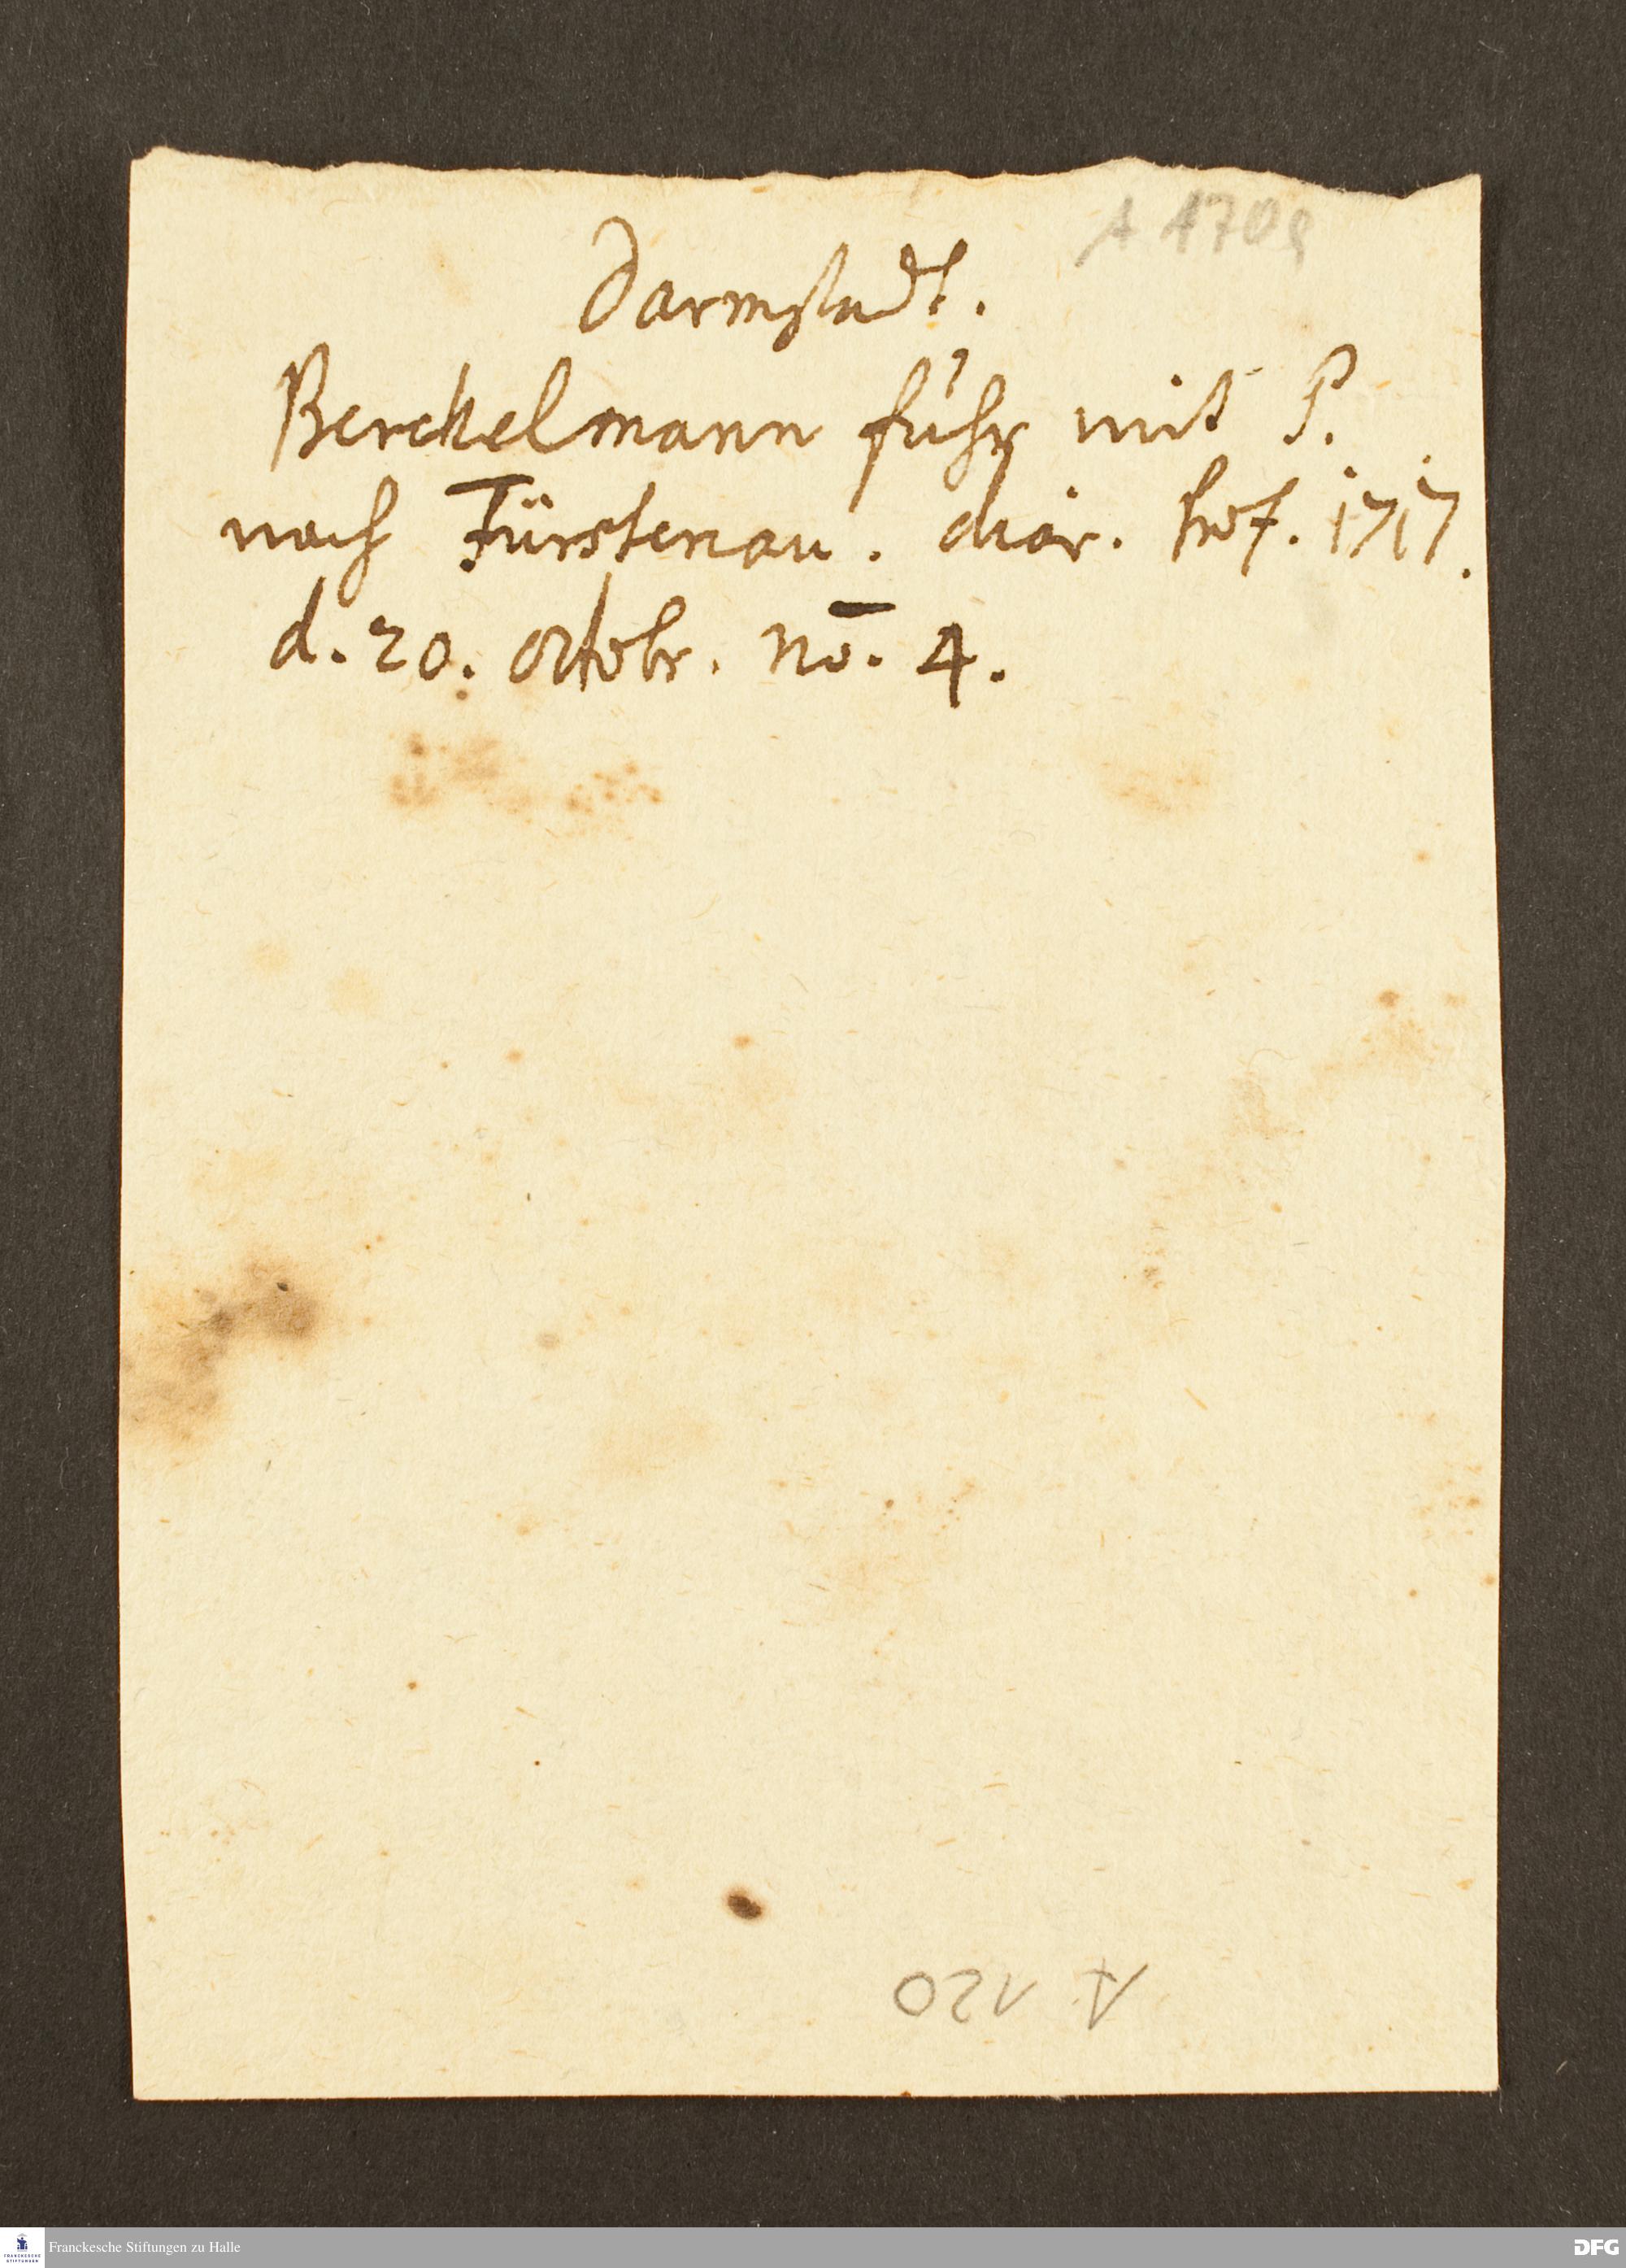 A 170g
Darmstadt.
Berckelmann fuhr mit P.
nach Fürstenau. diar. Prof. 1717.
d. 20. octobr. no. 4.
A 120
FRANCKESCHE STIFTUNGEN
Franckesche Stiftungen zu Halle
DFG